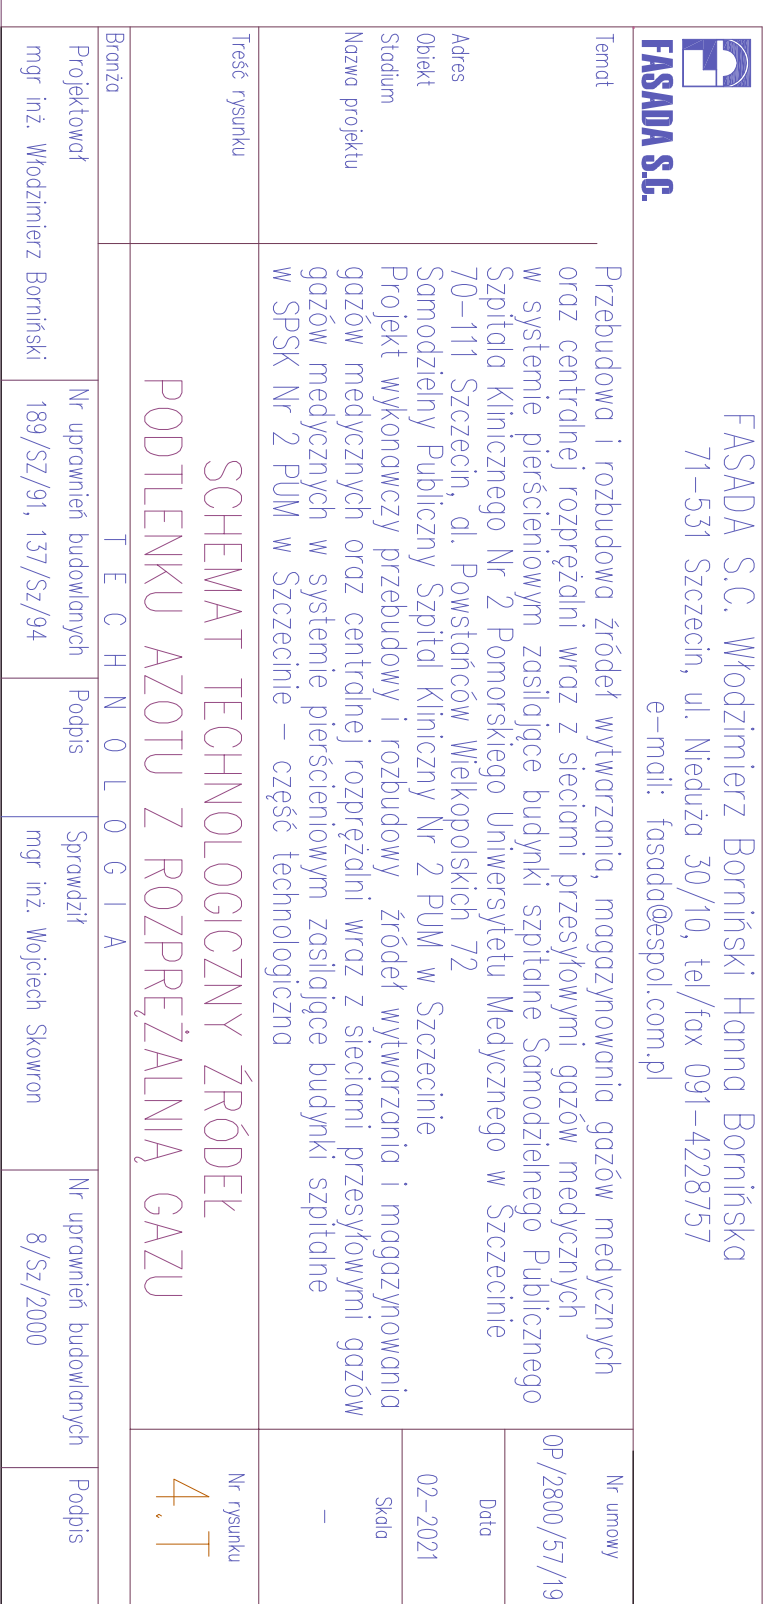 FASADA S.C.
FASADA S.C. Włodzimierz Borniński Hanna Bornińska
71-531 Szczecin, ul. Nieduża 30/10, tel/fax 091-4228757
e-mail: fasada@espol.com.pl
Temat
Przebudowa i rozbudowa źródeł wytwarzania, magazynowania gazów medycznych
oraz centralnej rozprężalni wraz z sieciami przesyłowymi gazów medycznych
w systemie pierścieniowym zasilające budynki szpitalne Samodzielnego Publicznego
Szpitala Klinicznego Nr 2 Pomorskiego Uniwersytetu Medycznego w Szczecinie
Adres
70-111 Szczecin, al. Powstańców Wielkopolskich 72
Obiekt
Samodzielny Publiczny Szpital Kliniczny Nr 2 PUM w Szczecinie
Stadium
Projekt wykonawczy przebudowy i rozbudowy źródeł wytwarzania i magazynowania
Nazwa projektu
gazów medycznych oraz centralnej rozprężalni wraz z sieciami przesyłowymi gazów
gazów medycznych w systemie pierścieniowym zasilające budynki szpitalne
w SPSK Nr 2 PUM w Szczecinie - część technologiczna
Nr umowy
OP/2800/57/19
Data
02-2021
Skala
-
Treść rysunku
SCHEMAT TECHNOLOGICZNY ŹRÓDEŁ
PODTLENKU AZOTU Z ROZPRĘŻALNIĄ GAZU
Nr rysunku
4.T
Branża
TECHNOLOGIA
Projektował
mgr inż. Włodzimierz Borniński
Nr uprawnień budowlanych
189/SZ/91, 137/Sz/94
Podpis
Sprawdził
mgr inż. Wojciech Skowron
Nr uprawnień budowlanych
8/Sz/2000
Podpis